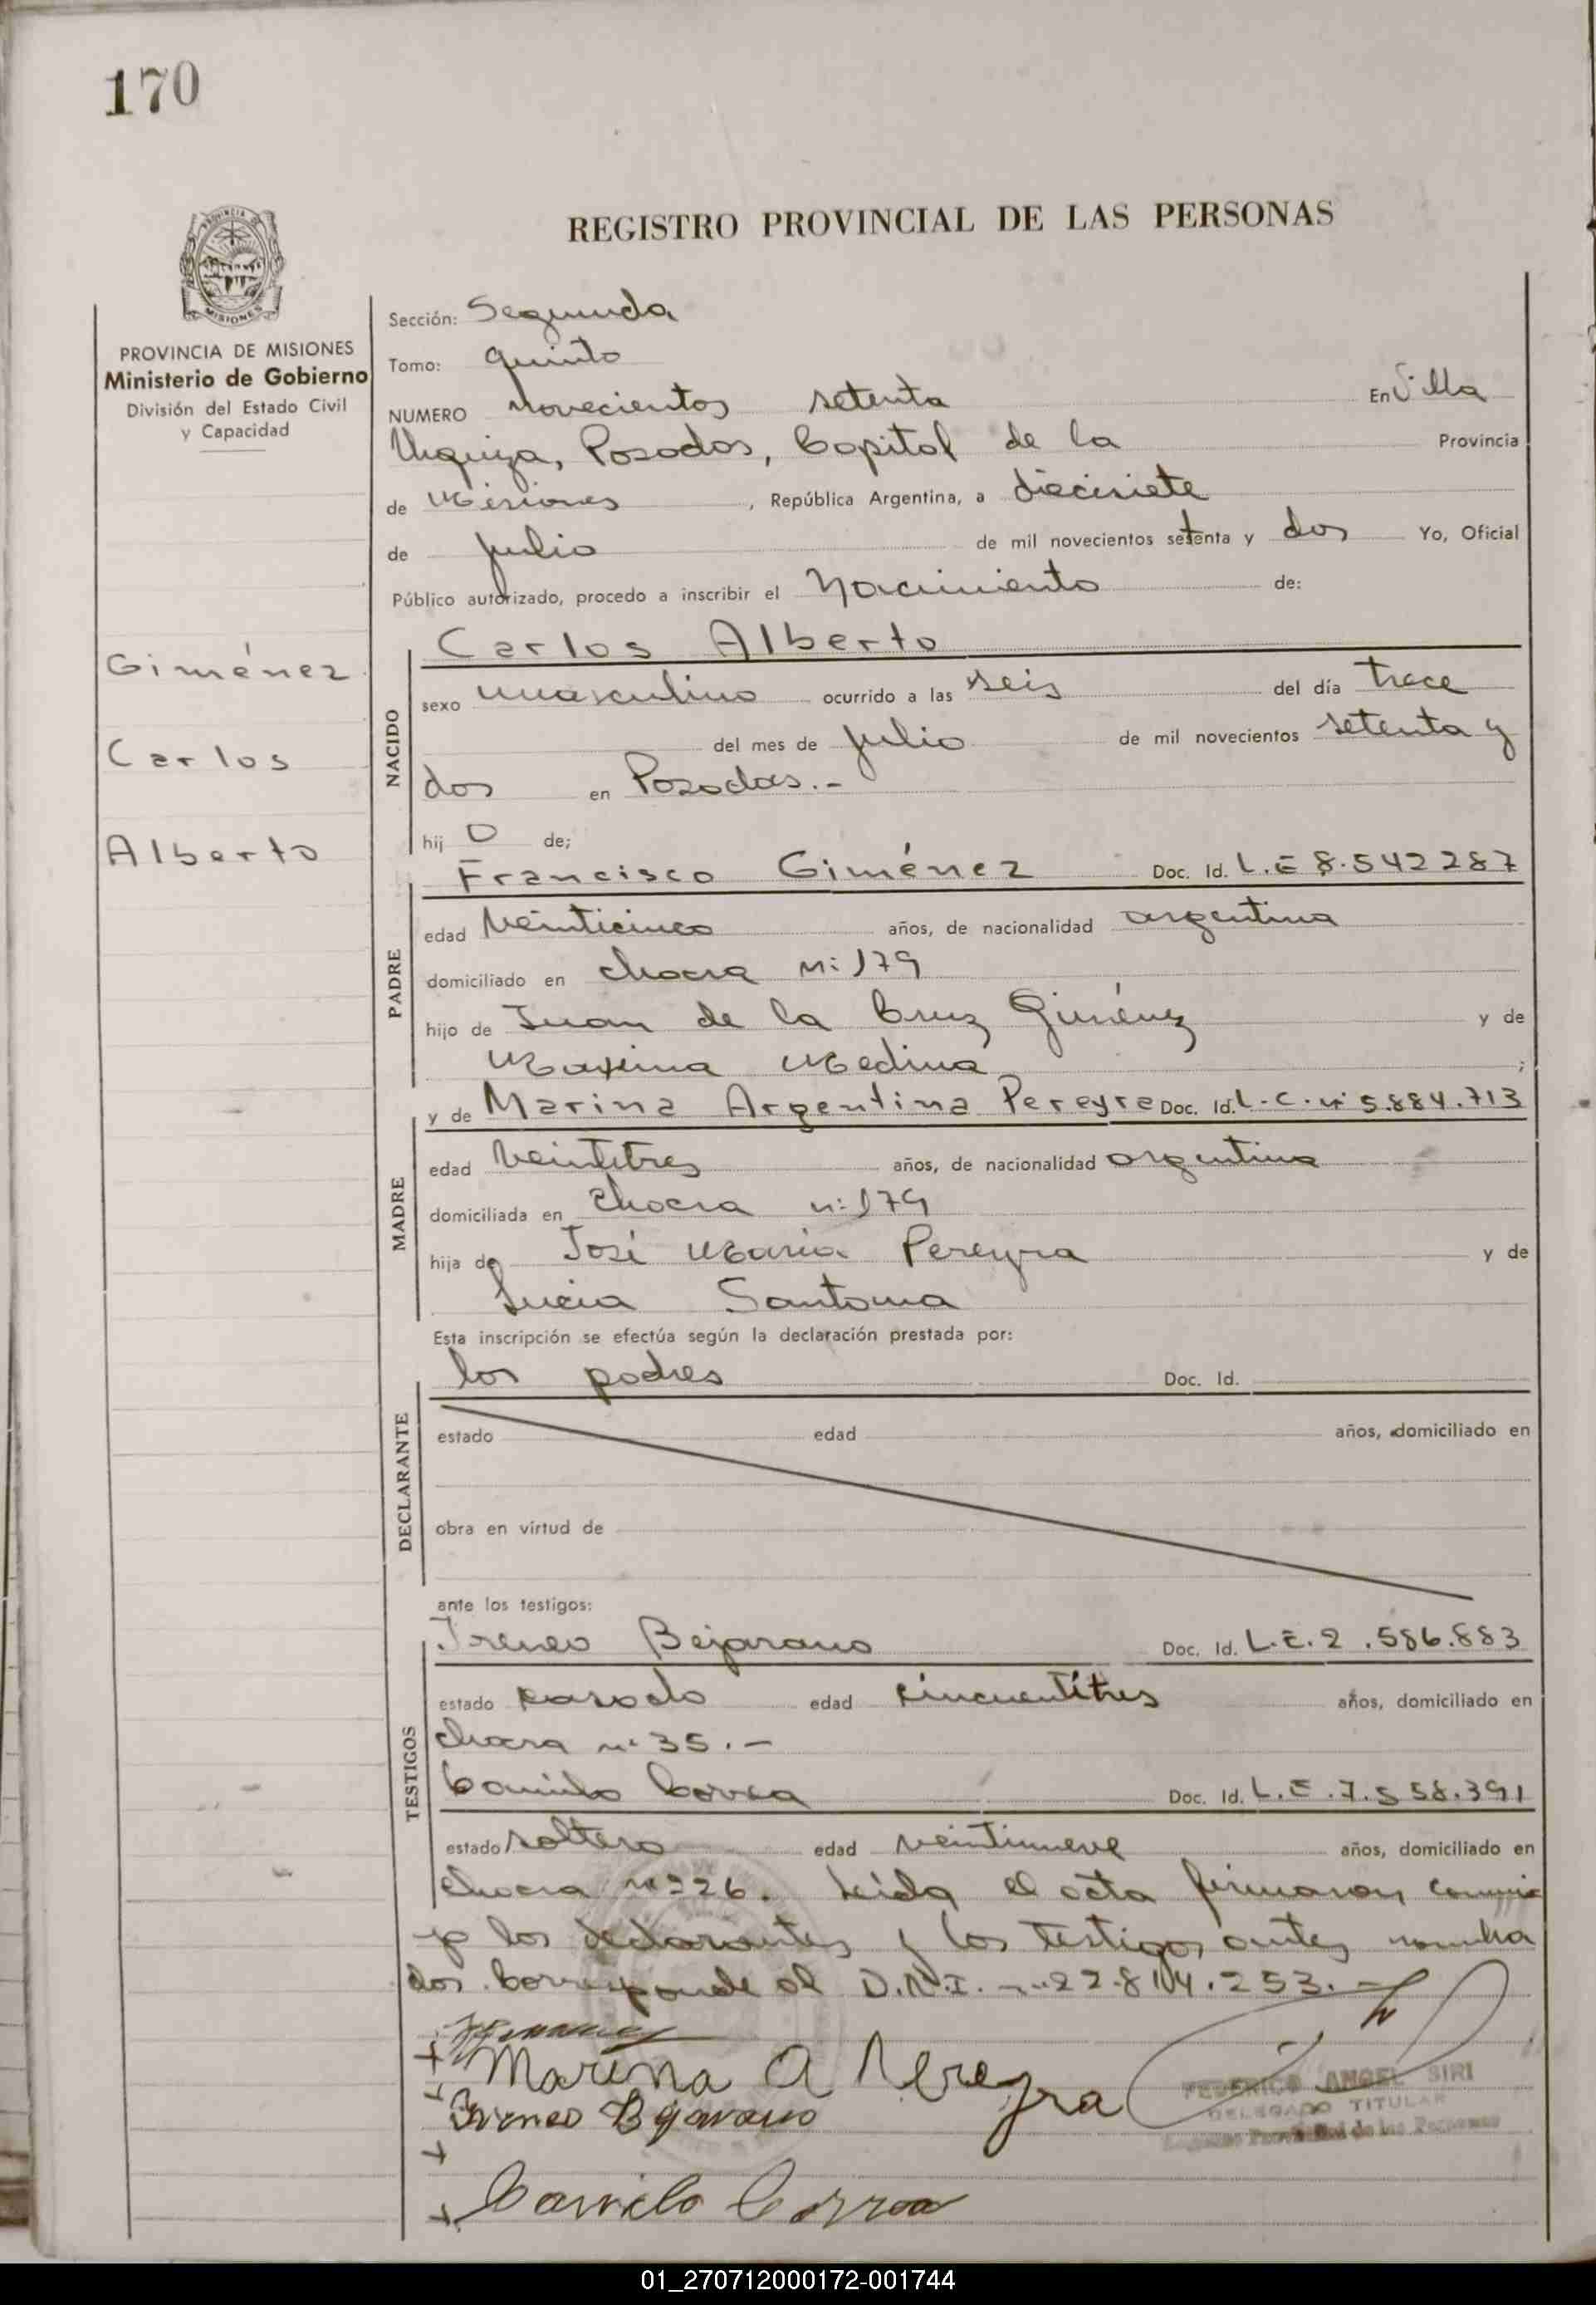 170
REGISTRO PROVINCIAL DE LAS PERSONAS
MISIONES
PROVINCIA DE MISIONES
Ministerio de Gobierno
División del Estado Civil
y Capacidad
Giménez
Carlos
Alberto
Sección: Segunda
Tomo: quinto
NUMERO novecientos setenta En Villa
Urquiza, Posadas, Capital de la Provincia
de Misiones, República Argentina, a diecisiete
de julio de mil novecientos setenta y dos Yo, Oficial
Público autorizado, procedo a inscribir el Nacimiento de:
NACIDO
Carlos Alberto
sexo masculino ocurrido a las seis del día trece
del mes de julio de mil novecientos setenta y
dos en Posadas.-
hij o de;
PADRE
Francisco Giménez Doc. Id. L.E 8.542287
edad veinticinco años, de nacionalidad argentina
domiciliado en chacra n: 179
hijo de Juan de la Cruz Giménez y de
Maxima Medina ;
MADRE
y de Marina Argentina Pereyra Doc. Id. L.C. nº 5.884.713
edad veintitres años, de nacionalidad argentina
domiciliada en chacra n: 179
hija de José María Pereyra y de
Lucia Santoma
Esta inscripción se efectúa según la declaración prestada por:
DECLARANTE
los padres Doc. Id.
estado edad años, domiciliado en
obra en virtud de
ante los testigos:
TESTIGOS
Ireneo Bejarano Doc. Id. L.E.2.586.883
estado casado edad cincuentitres años, domiciliado en
chacra nº 35.-
Camilo Correa Doc. Id. L.E.7.558.391
estado soltero edad veintinueve años, domiciliado en
chacra nº 226. Leida el acta firmaron conmi
go los declarantes y los testigos antes nombra
dos. Corresponde al D.N.I. nº 22.814.253.-
Marina A Pereyra
Ireneo Bejarano
FEDERICO ANGEL SIRI
DELEGADO TITULAR
Registro Provincial de las Personas
Camilo Correa
01_270712000172-001744